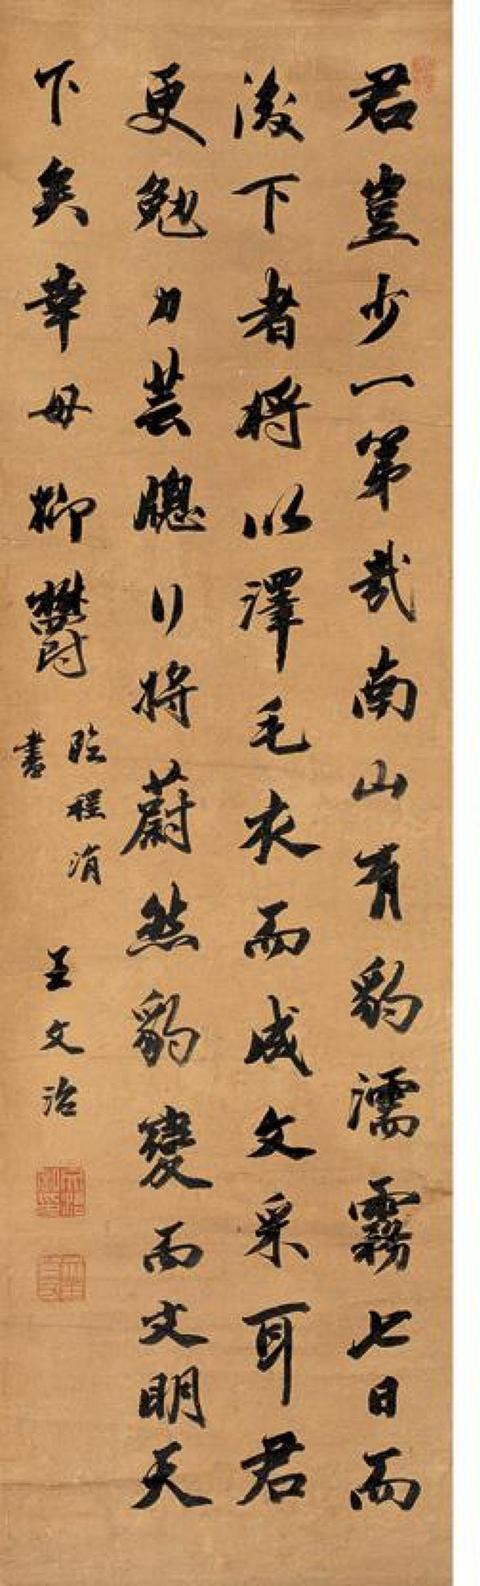 君豈少一第哉南山有豹濡霧七日而
後下者將以澤毛衣而成文采耳君
更勉力芸牕行將蔚然豹變而文明天
下矣幸毋抑鬱
臨程涓
書
王文治